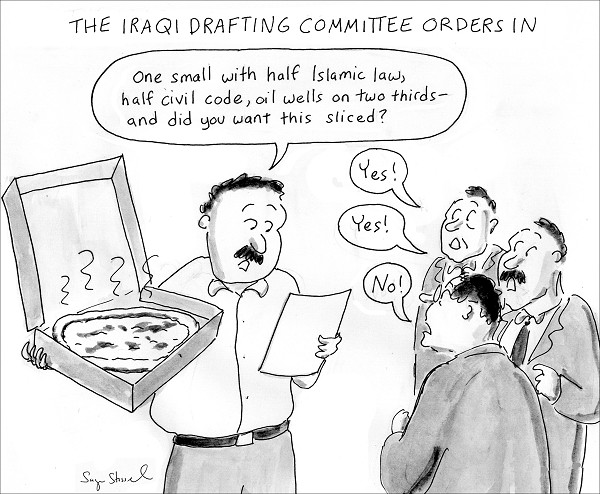 THE IRAQI DRAFTING COMMITTEE ORDERS IN
One small with half Islamic law,
half civil code, oil wells on two thirds—
and did you want this sliced?
Yes!
Yes!
No!